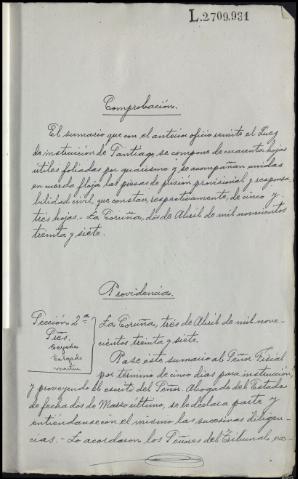 L.2709.931
Comprobación.
El sumario que con el anterior oficio remite el Juez
de instrucción de Santiago se compone de cuarenta hojas
utiles foliadas por guarismo y se acompañan unidas
en cuerda floja las piezas de prisión provisional y responsa
bilidad civil, que constan respectivamente, de cinco y
tres hojas.- La Coruña, dos de Abril de mil novecientos
treinta y siete.
Providencia.
Sección 2ª
Sres.
La Coruña, tres de Abril de mil nove-
cientos treinta y siete.
Pase este sumario al Señor Fiscal
por termino de cinco dias para instrucción,
y proveyendo el escrito del Señor Abogado del Estado
de fecha dos de Marzo último, se le declara parte y
entiendanse con el mismo las sucesivas diligen-
cias.- Lo acordaron los Señores del Tribunal,